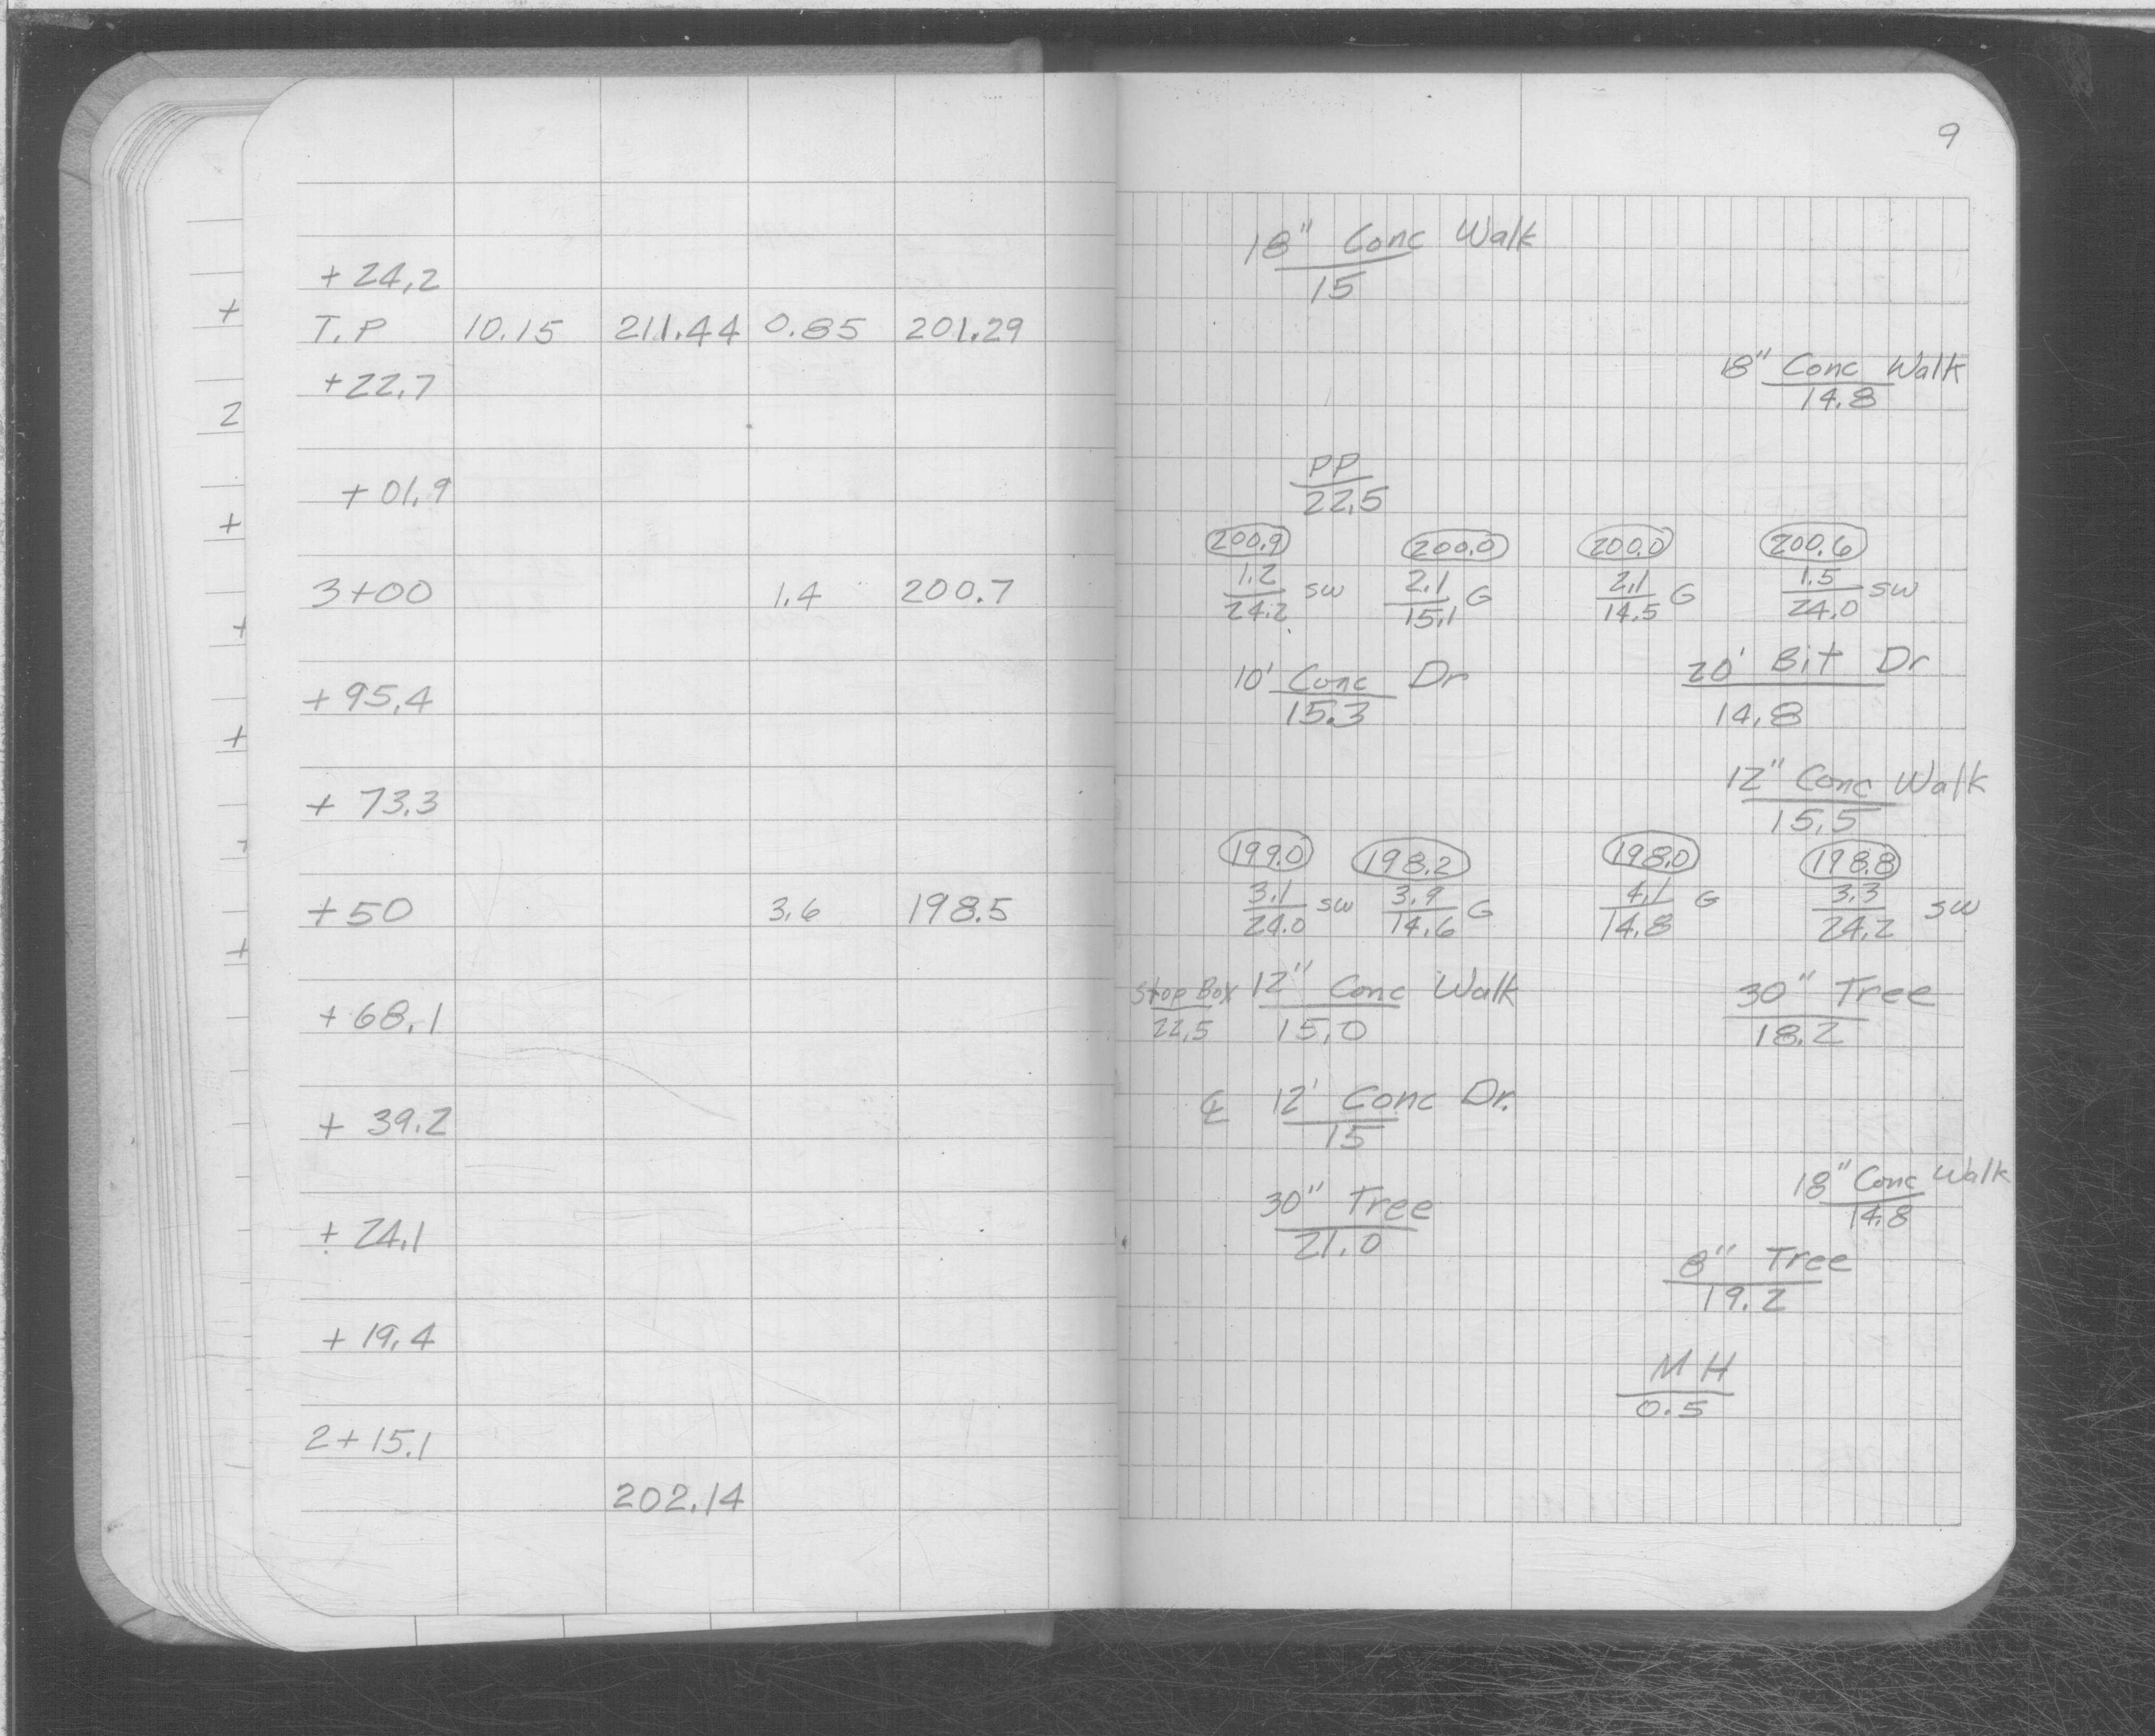 9
18" Conc Walk
+24.2 15
T.P 10.15 211.44 0.85 201.29
18" Conc Walk
+22.7 14.8
PP
+01.9 22.5
200.9 200.0 200.0 200.6
1.2 2.1 2.1 1.5
3+00 1.4 200.7 SW G G SW
24.2 15.1 14.5 24.0
10' Conc Dr 20' Bit Dr
+95.4 15.3 14.8
12" Conc Walk
+73.3 15.5
199.0 198.2 198.0 198.8
3.1 3.9 4.1 3.3
+50 3.6 198.5 SW G G SW
24.0 14.6 14.8 24.2
Stop Box 12" Conc Walk 30" Tree
+68.1 22.5 15.0 18.2
℄ 12' Conc Dr.
+39.2 15
18" Conc Walk
14.8
30" Tree
+24.1 21.0
8" Tree
19.2
+19.4
MH
0.5
2+15.1
202.14
+
2
+
+
+
+